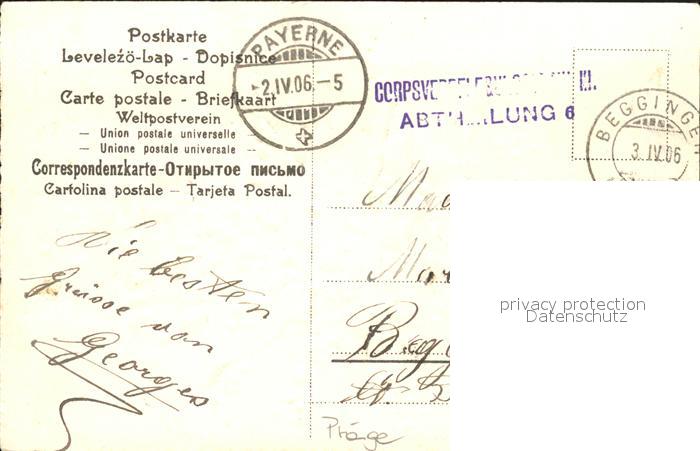 Postkarte
Levelezö-Lap - Dopisnice
Postcard
Carte postale - Briefkaart
Weltpostverein
— Union postale universelle
— Unione postale universale —
Correspondenzkarte-Открытое письмо
Cartolina postale — Tarjeta Postal.
PAYERNE
-2.IV.06.-5
ABTHEILUNG 6
BEGGINGEN
3.IV.06
Die besten
Grüsse von
Georges
Mad
Mar
Begg
Präge
privacy protection
Datenschutz